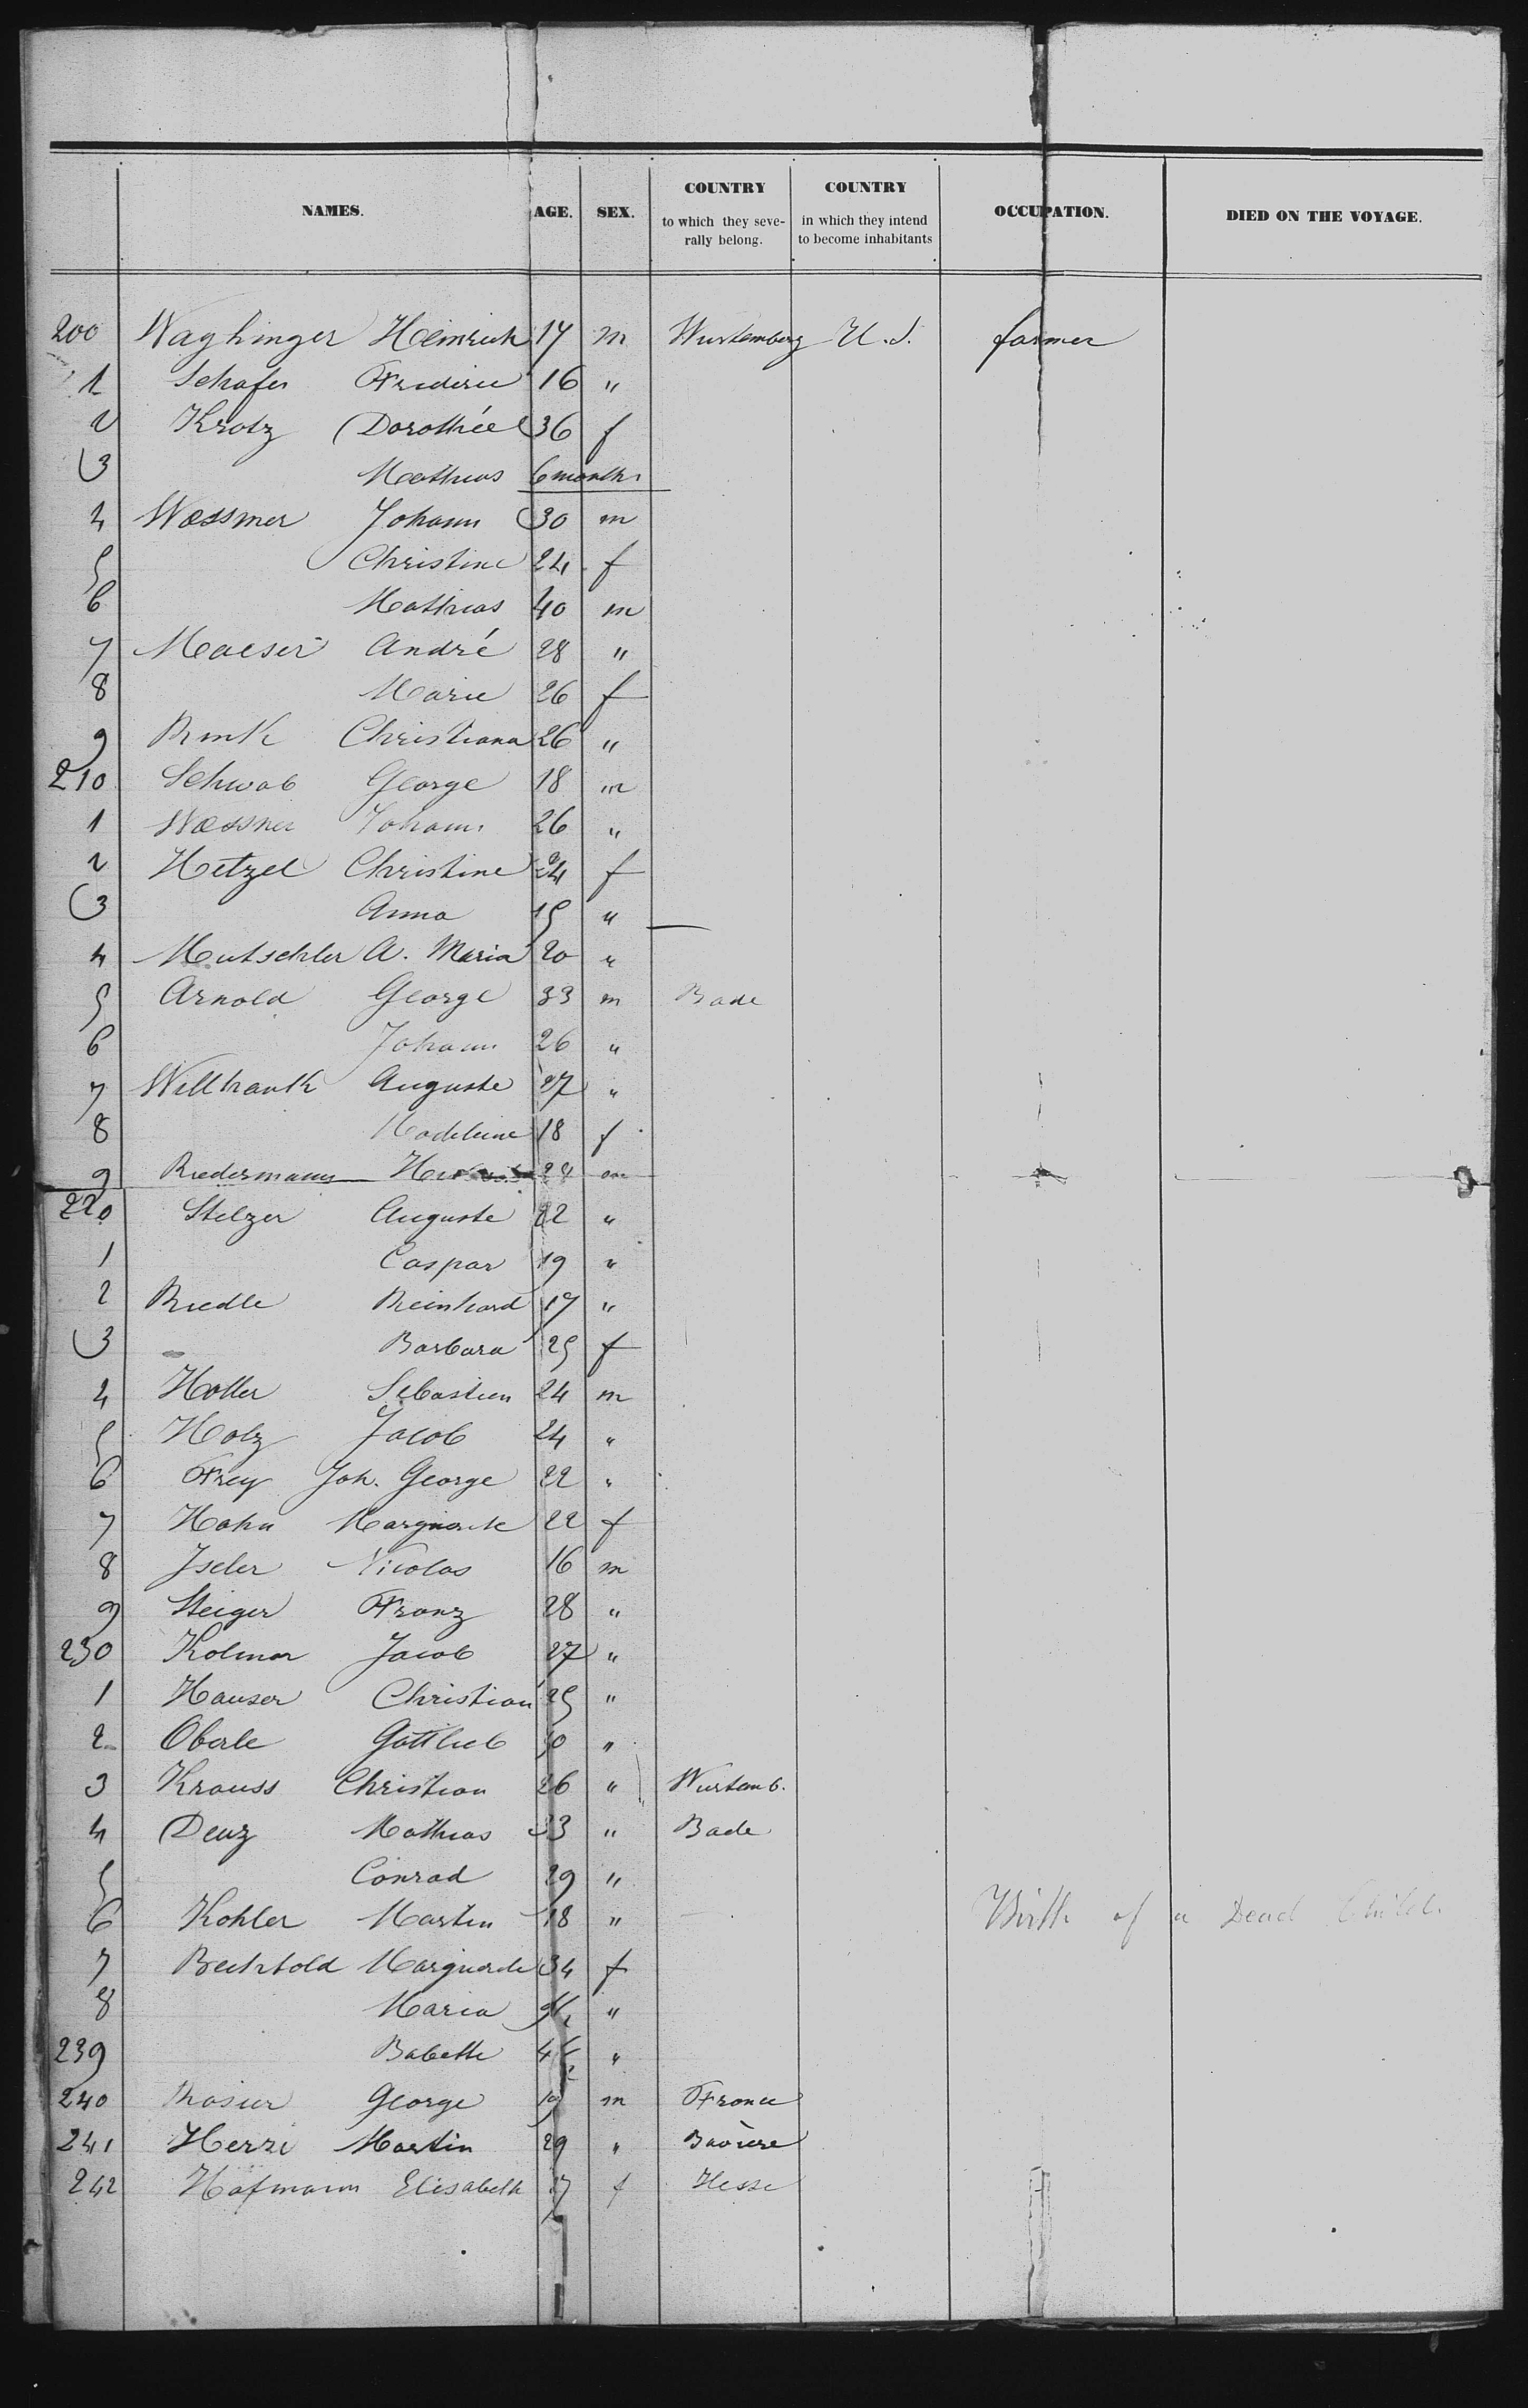 NAMES. AGE. SEX. COUNTRY to which they severally belong. COUNTRY in which they intend to become inhabitants OCCUPATION. DIED ON THE VOYAGE.
200 Waghinger Heinrich 17 m Wurtemberg U.S. farmer
1 Schafer Frederic 16 "
2 Krotz Dorothée 36 f
3 Mathias 6 months
4 Wossmer Johann 30 m
5 Christine 24 f
6 Mathias 40 m
7 Maeser André 28 "
8 Marie 26 f
9 Rink Christiana 26 "
210 Schwab George 18 m
1 Wossner Johann 26 "
2 Hetzel Christine 24 f
3 Anna 15 "
4 Mutschler A. Maria 20 "
5 Arnold George 33 m Bade
6 Johann 26 "
7 Willhauk Auguste 27 "
8 Madeleine 18 f
9 Riedermann 24 m
220 Stelzer Auguste 22 "
1 Caspar 19 "
2 Riedle Reinhard 17 "
3 Barbara 25 f
4 Holler Sebastien 24 m
5 Holz Jacob 24 "
6 Frey Joh. George 22 "
7 Hahn Marguerite 22 f
8 Iseler Nicolas 16 m
9 Steiger Franz 28 "
230 Kolmar Jacob 27 "
1 Hauser Christian 25 "
2 Oberle Gottlieb 30 "
3 Krauss Christian 26 " Wurtemb.
4 Deuz Mathias 33 " Bade
5 Conrad 29 "
6 Kohler Martin 18 " Birth of a Dead Child.
7 Bechtold Marguerite 34 f
8 Maria "
239 Babette "
240 Rosier George 19 m France
241 Herzi Martin 29 " Bavière
242 Hofmann Elisabeth 17 f Hesse